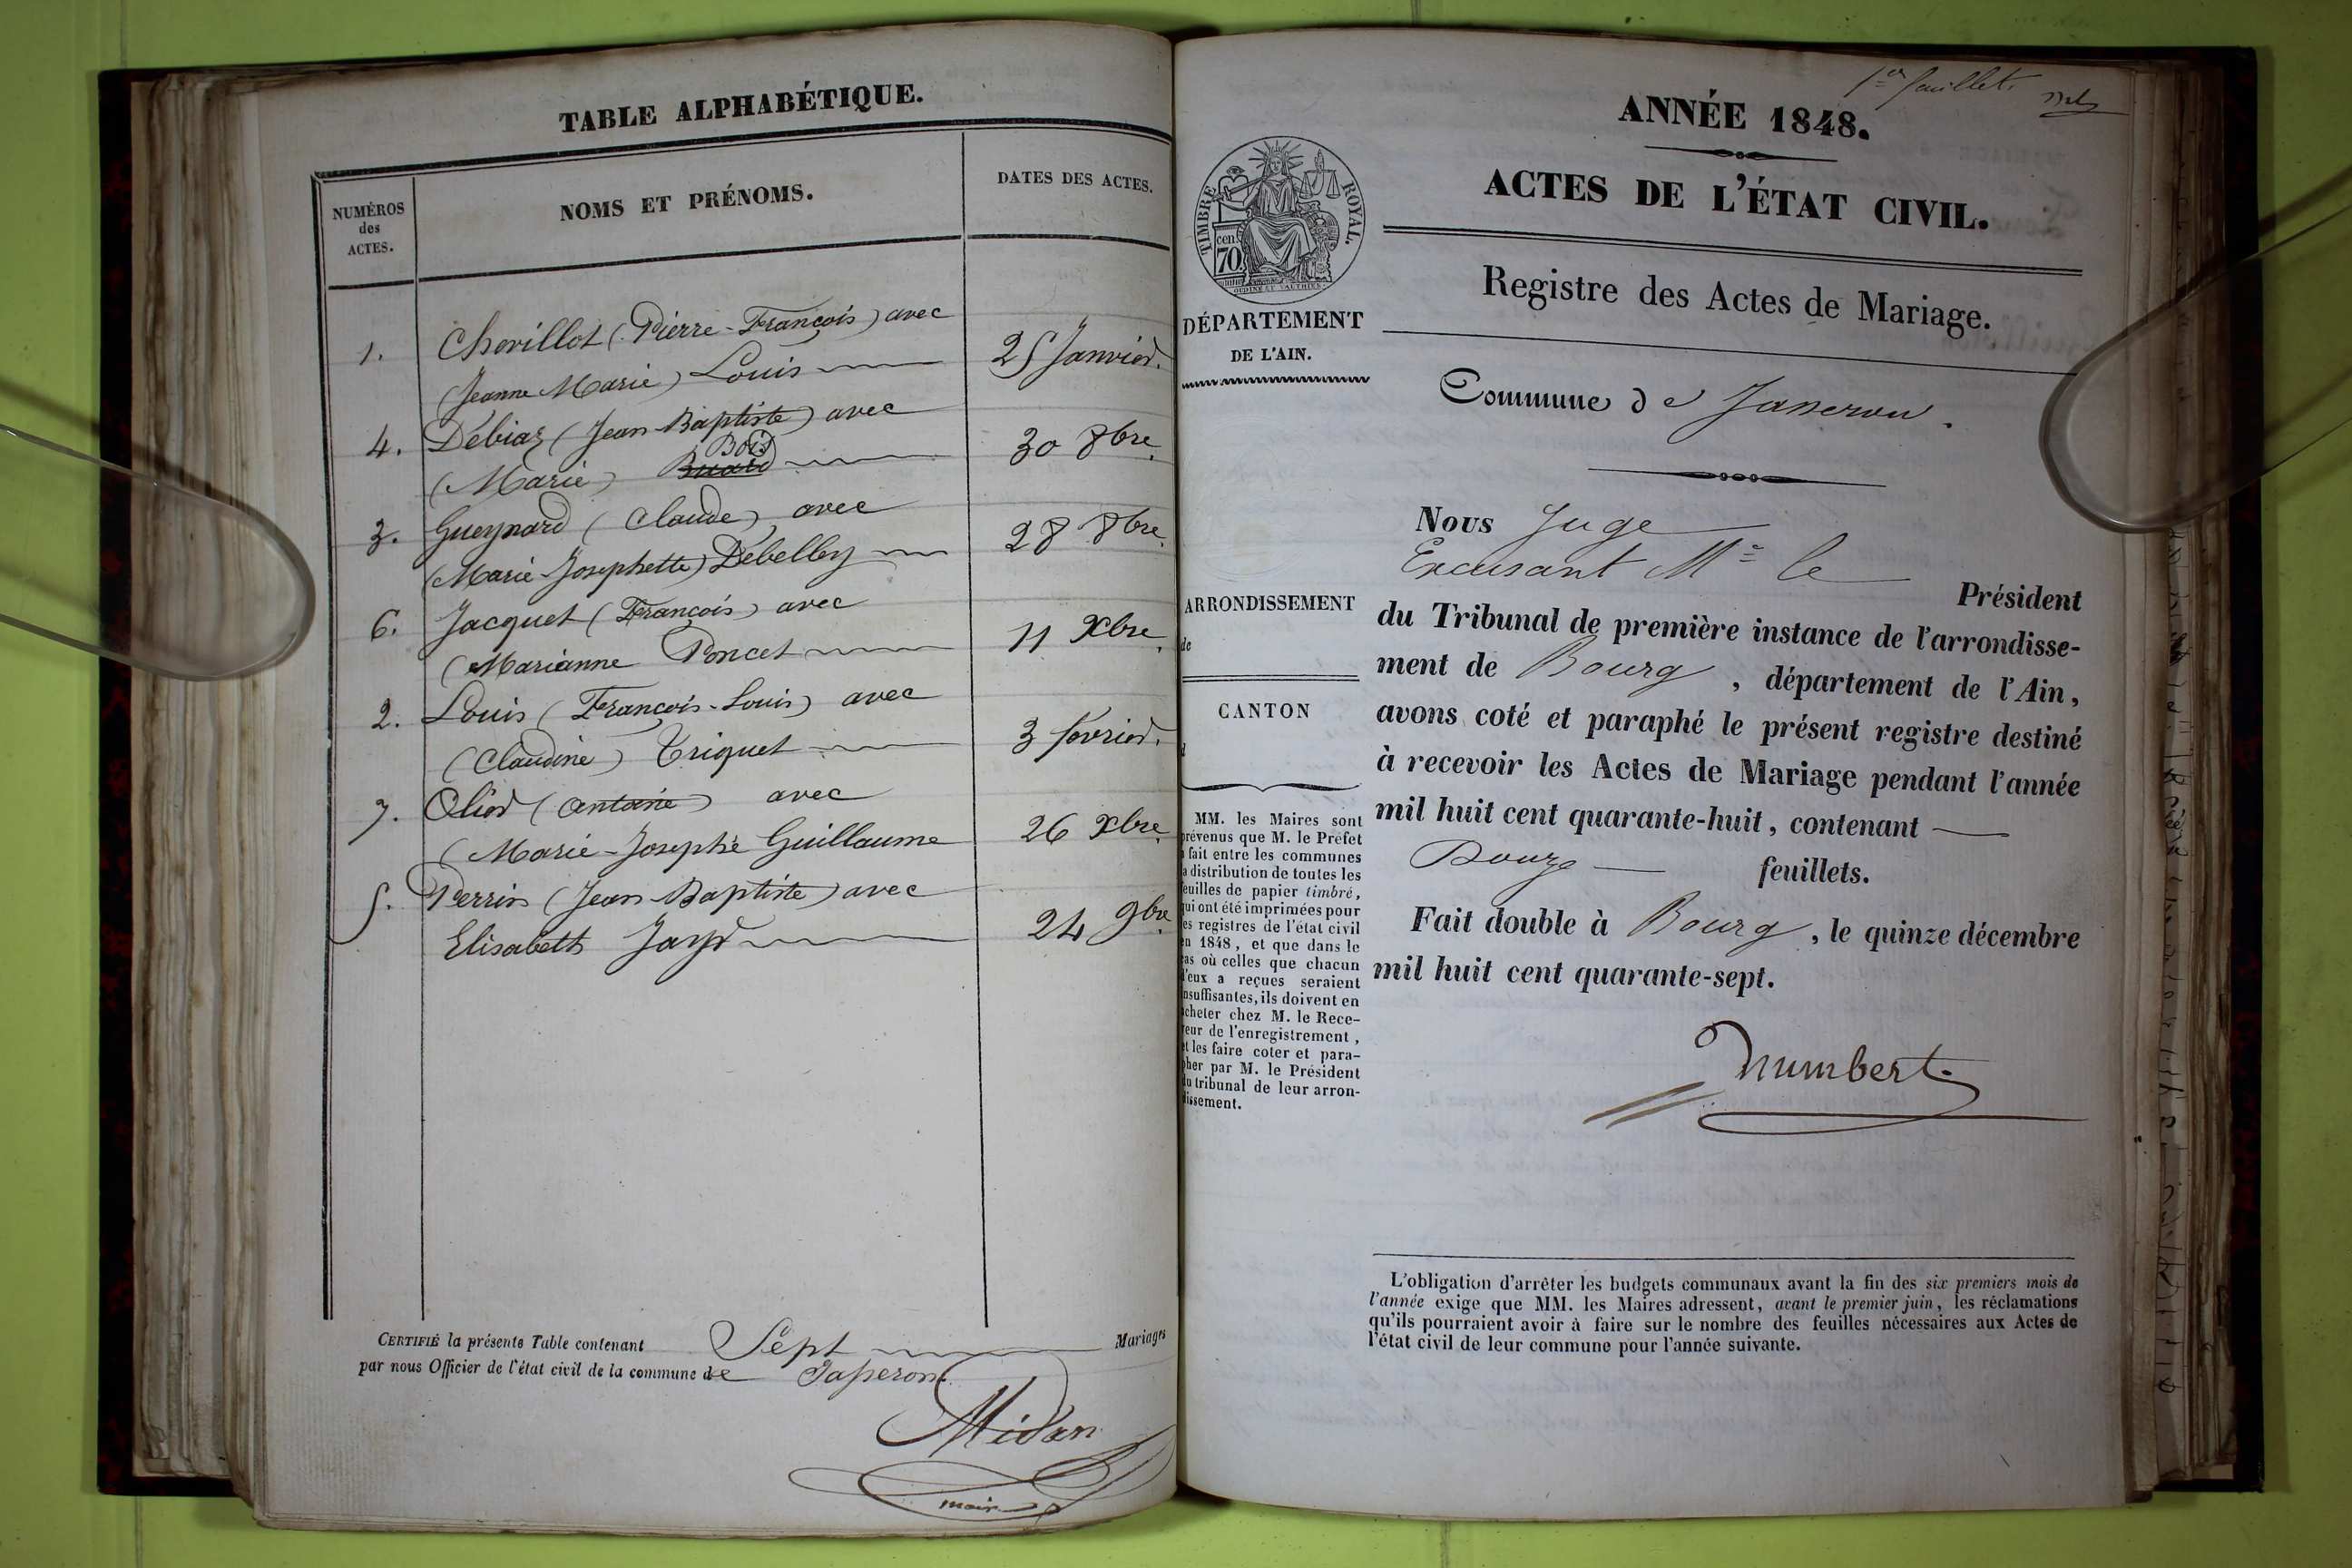 TABLE ALPHABÉTIQUE.
NUMÉROS
des
ACTES.
NOMS ET PRÉNOMS.
DATES DES ACTES.
1. Chevillot (Pierre-François) avec
(Jeanne Marie) Louis 25 Janvier.
4. Debiaz (Jean-Baptiste) avec
Bois
(Marie) 30 8bre.
3. Gueynard (Claude) avec
(Marie-Josephette) Debelley 28 8bre.
6. Jacquet (François) avec
(Marianne Poncet 11 Xbre.
2. Louis (François-Louis) avec
(Claudine) Triquet 3 février.
7. Olier (Antoine) avec
(Marie-Josephe Guillaume 26 Xbre.
5. Perrin (Jean-Baptiste) avec
Elisabeth Jayr 24 9bre.
CERTIFIÉ la présente Table contenant Sept Mariages
par nous Officier de l'état civil de la commune de Jasseron.
Midan
maire
1er feuillet.
ANNÉE 1848.
ACTES DE L'ÉTAT CIVIL.
Registre des Actes de Mariage.
TIMBRE ROYAL.
cen.
70
OUDINÉ ET VAUTHIER.
DÉPARTEMENT
DE L'AIN.
ARRONDISSEMENT
de
CANTON
d
MM. les Maires sont
prévenus que M. le Préfet
a fait entre les communes
la distribution de toutes les
feuilles de papier timbré,
qui ont été imprimées pour
les registres de l'état civil
en 1848, et que dans le
cas où celles que chacun
d'eux a reçues seraient
insuffisantes, ils doivent en
acheter chez M. le Rece-
veur de l'enregistrement,
et les faire coter et para-
pher par M. le Président
du tribunal de leur arron-
dissement.
Commune de Jasseron.
Nous Juge
Excusant Mr le Président
du Tribunal de première instance de l'arrondisse-
ment de Bourg, département de l'Ain,
avons coté et paraphé le présent registre destiné
à recevoir les Actes de Mariage pendant l'année
mil huit cent quarante-huit, contenant
Douze feuillets.
Fait double à Bourg, le quinze décembre
mil huit cent quarante-sept.
humbert
L'obligation d'arrêter les budgets communaux avant la fin des six premiers mois de
l'année exige que MM. les Maires adressent, avant le premier juin, les réclamations
qu'ils pourraient avoir à faire sur le nombre des feuilles nécessaires aux Actes de
l'état civil de leur commune pour l'année suivante.